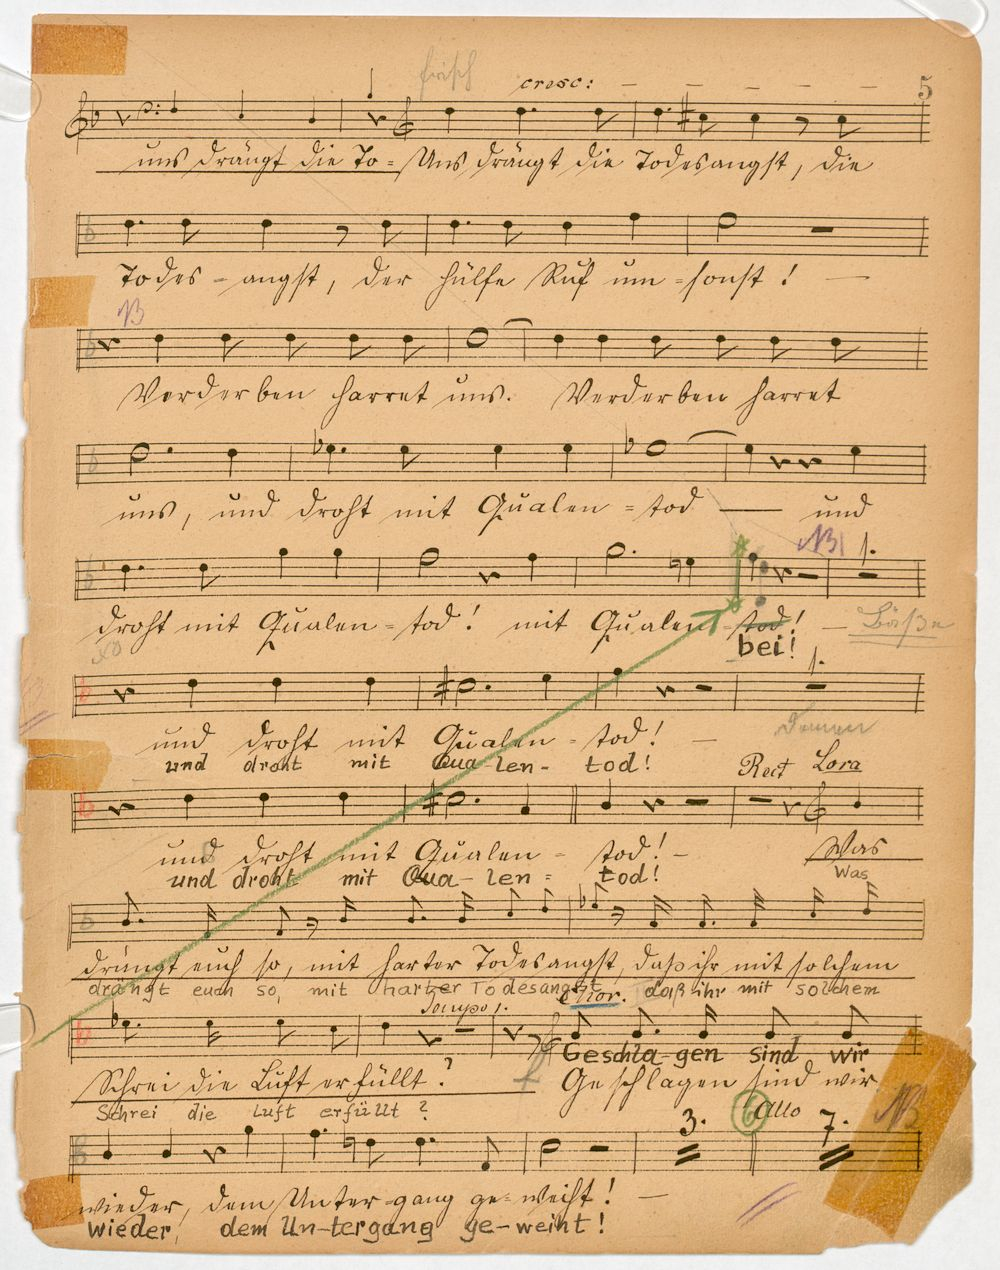 frisch
cresc:
5
uns drängt die To= Uns drängt die Todesangst, die
Todes - angst, der Hülfe Ruf um =sonst!
NB
Verderben harret uns. Verderben harret
uns, und droht mit Qualen = tod — und
NB
1.
droht mit Qualen = tod! mit Qualen = tod! — Bässe
bei!
1.
und droht mit Qualen = tod! —
Damen
und droht mit Qua-len- tod!
Rect Lora
und droht mit Qualen = tod! — Was
und droht mit Qua-len = tod! Was
drängt euch so, mit harter Todesangst, daß ihr mit solchem
drängt euch so, mit harter Todesangst, daß ihr mit solchem
Tempo 1.
Chor.
Geschla-gen sind wir
Schrei die Luft erfüllt? Geschlagen sind wir
Schrei die Luft erfüllt?
6 Allo
NB
3.
7.
wieder, dem Unter=gang ge=weiht! —
wieder, dem Un-tergang ge-weiht!